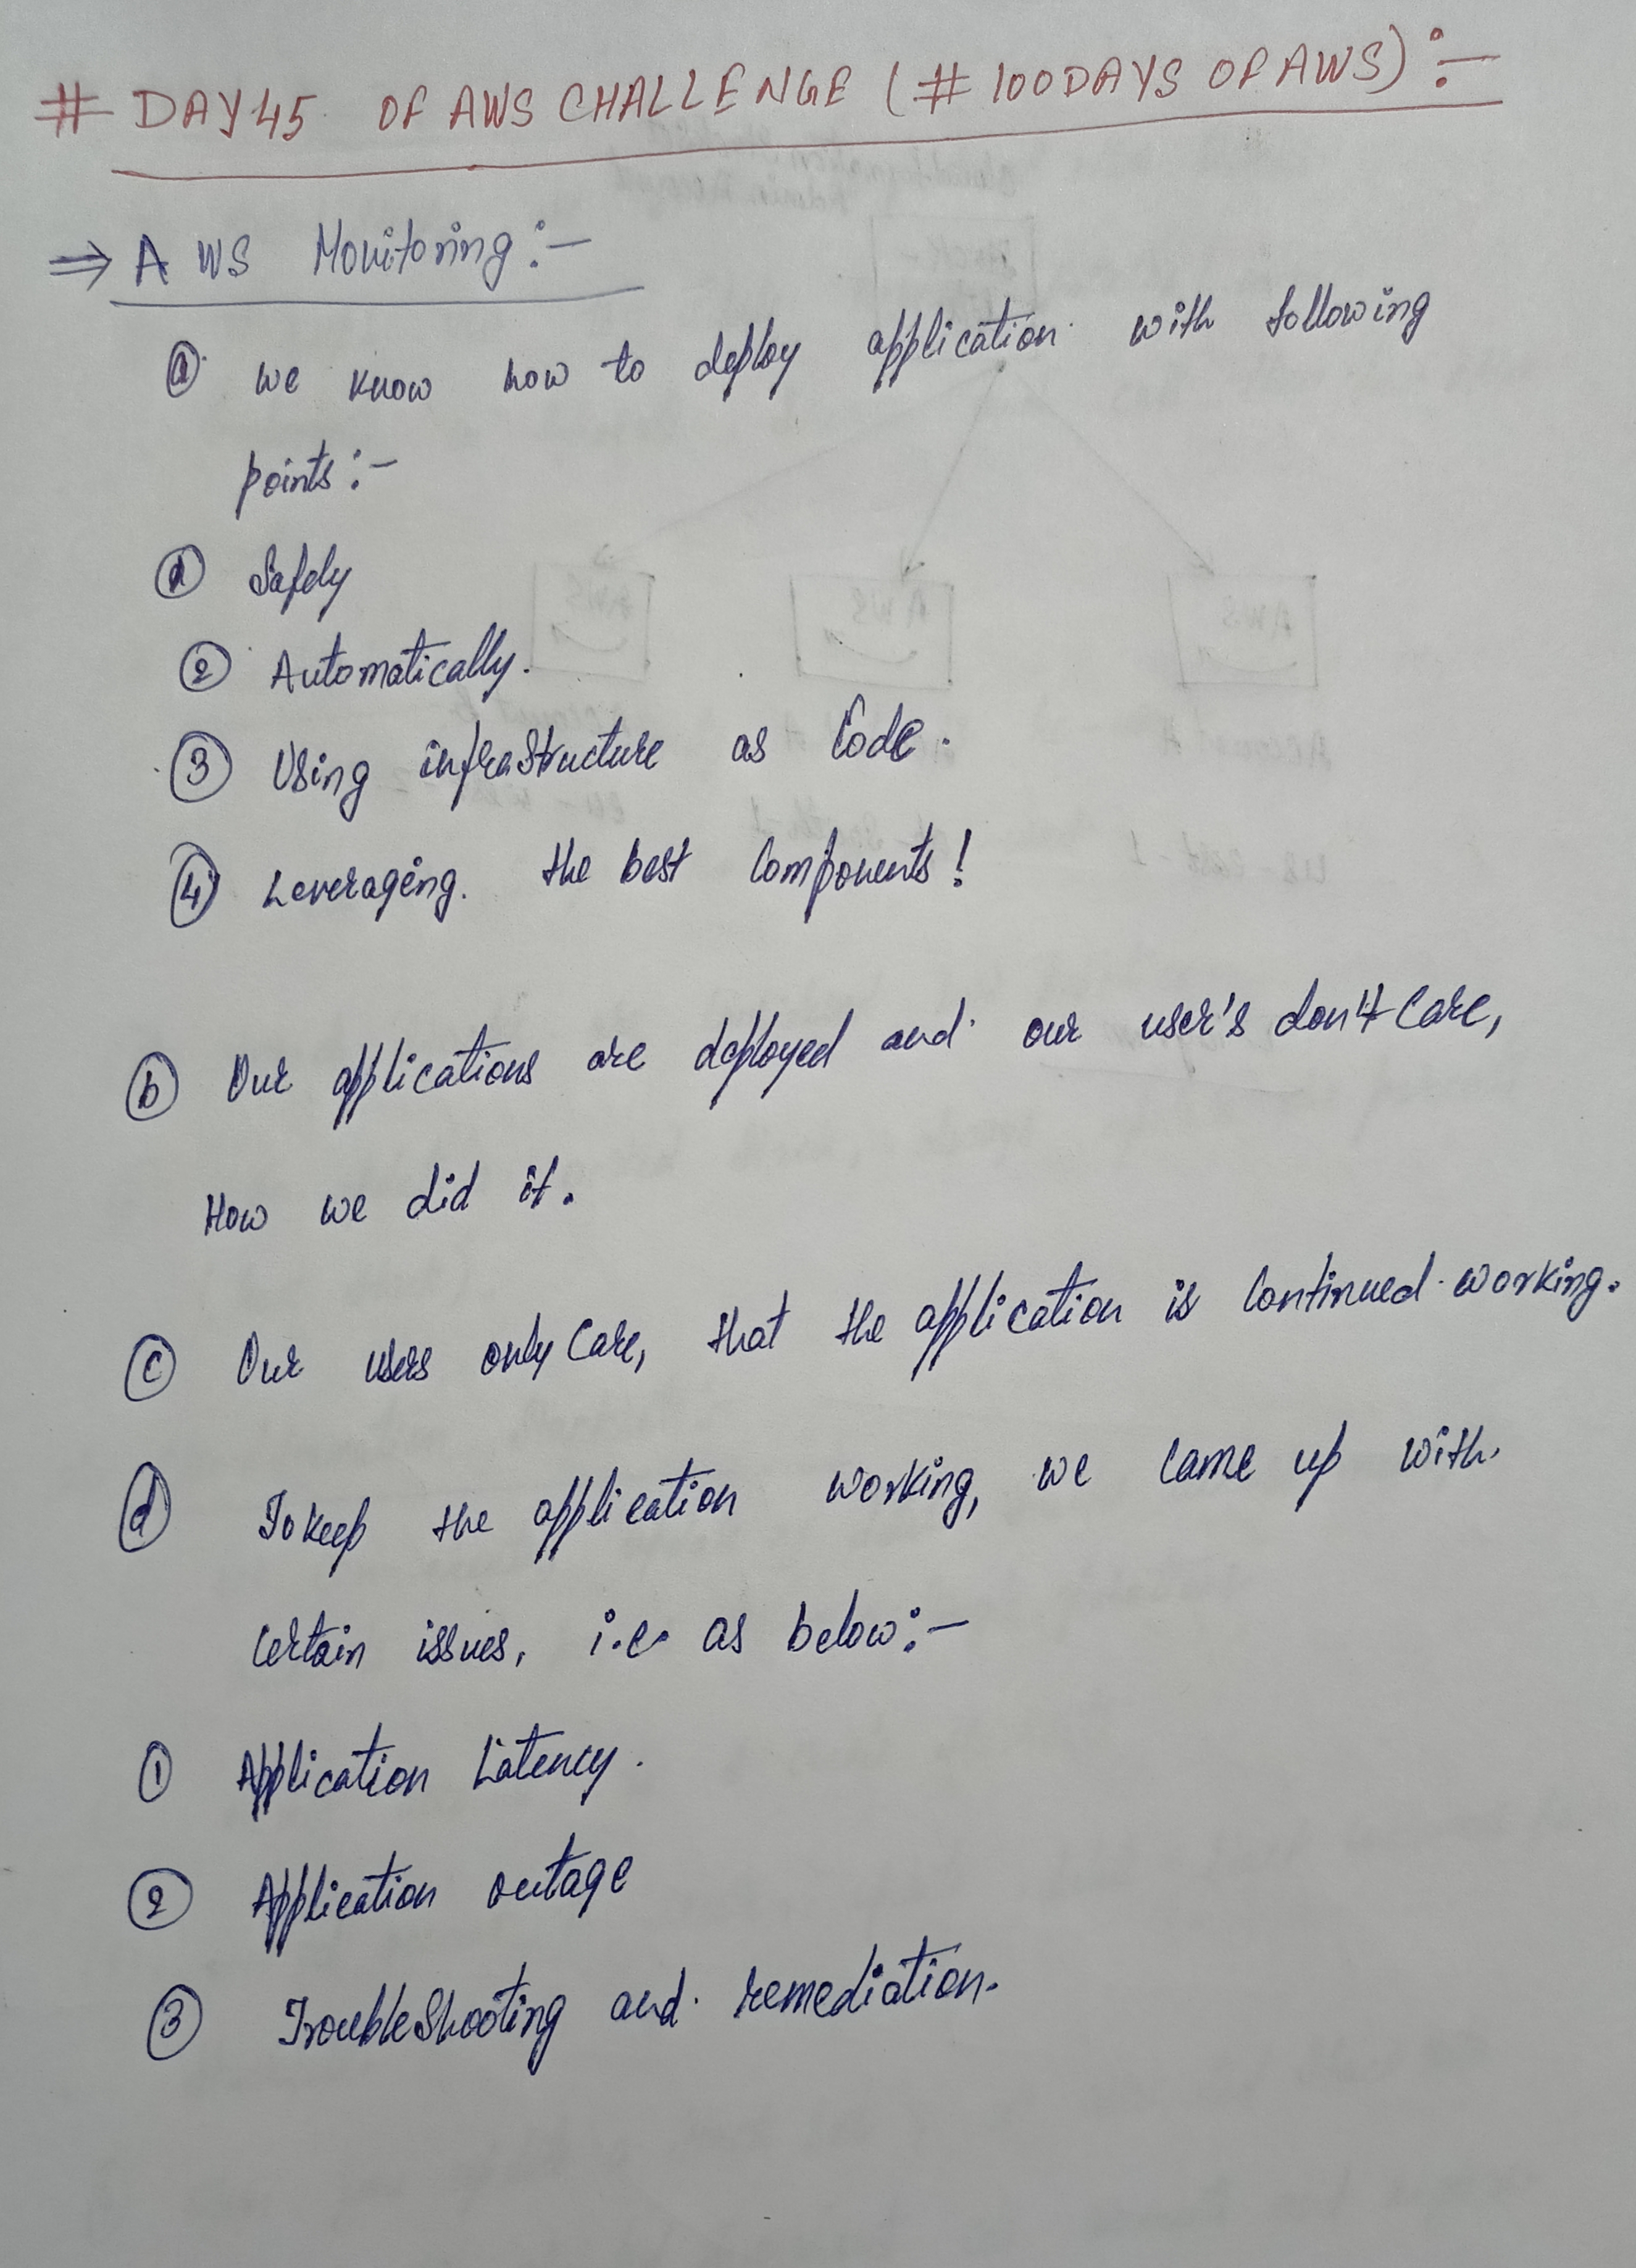 # DAY 45 OF AWS CHALLENGE (# 100DAYS OF AWS) :-
⇒ AWS Monitoring :-
ⓐ we know how to deploy application with following
points :-
① Safely
② Automatically.
③ Using infrastructure as Code.
④ Leveraging. the best Components!
ⓑ Our applications are deployed and our user's don't Care,
How we did it.
ⓒ Our users only Care, that the application is Continued working.
ⓓ To keep the application working, we Came up with
Certain issues, i.e as below :-
① Application Latency.
② Application outage
③ TroubleShooting and remediation.